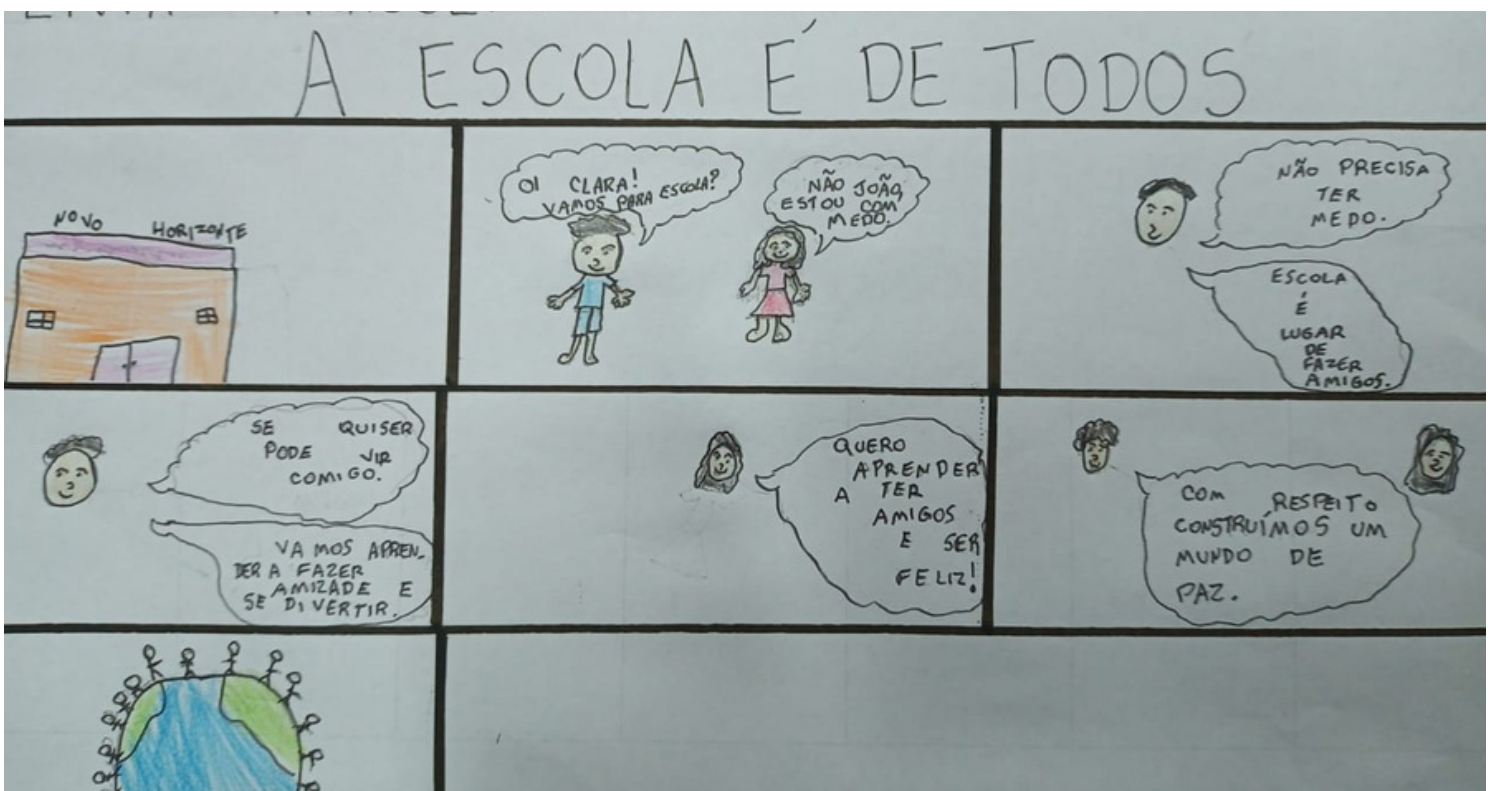 A ESCOLA É DE TODOS
NOVO HORIZONTE
OI CLARA!
VAMOS PARA ESCOLA?
NÃO JOÃO,
ESTOU COM
MEDO.
NÃO PRECISA
TER
MEDO.
ESCOLA
É
LUGAR
DE
FAZER
AMIGOS.
SE QUISER
PODE VIR
COMIGO.
VAMOS APREN-
DER A FAZER
AMIZADE E
SE DIVERTIR.
QUERO
APRENDER
A TER
AMIGOS
E SER
FELIZ!
COM RESPEITO
CONSTRUÍMOS UM
MUNDO DE
PAZ.